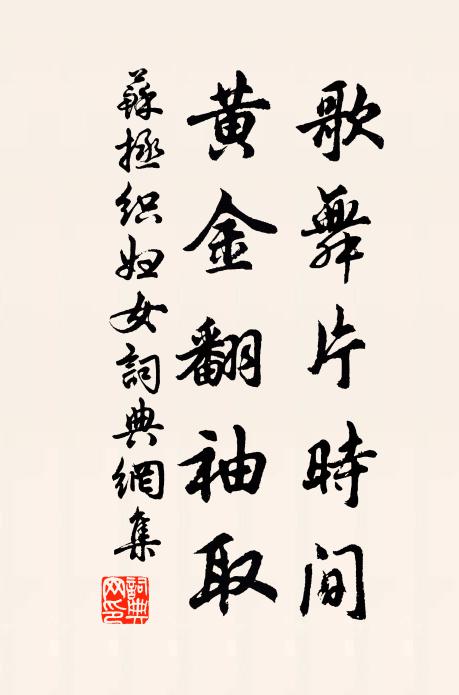 歌舞片時間
黃金翻袖取
蘇拯织妇女詞典網集
詞典网印